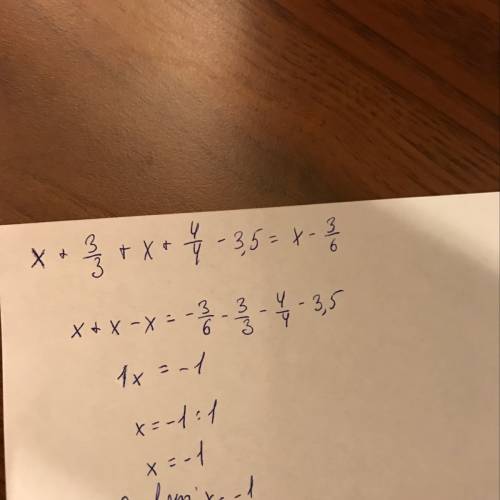 x + 3/3 + x + 4/4 - 3,5 = x - 3/6
x + x - x = - 3/6 - 3/3 - 4/4 - 3,5
1x = -1
x = -1 : 1
x = -1
x = -1